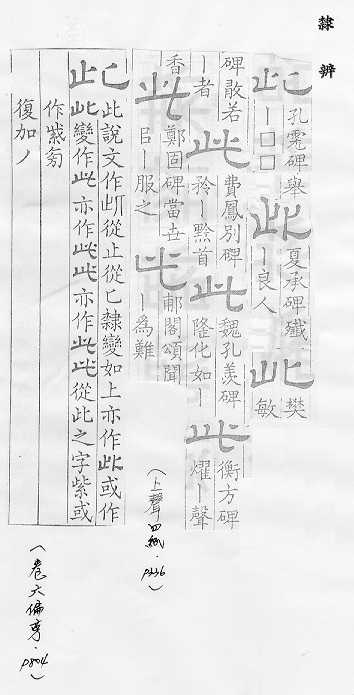 隸辨
此 孔碑舉
｜□□
此 夏承碑殲
｜良人
此 樊
敏
碑敢若
｜者
此 費鳳別碑
矜｜黔首
此 魏孔羨碑
隆化如｜
此 衡方碑
燿｜聲
香
此 鄭固碑當世
㠯｜服之
此 郙閣頌聞
｜為難
此 此說文作從止從匕隸變如上亦作此或作
此變作此亦作此此亦作此此從此之字紫或
作紫芻
復加ノ
(上聲四紙．P336)
(卷六偏旁．P804)